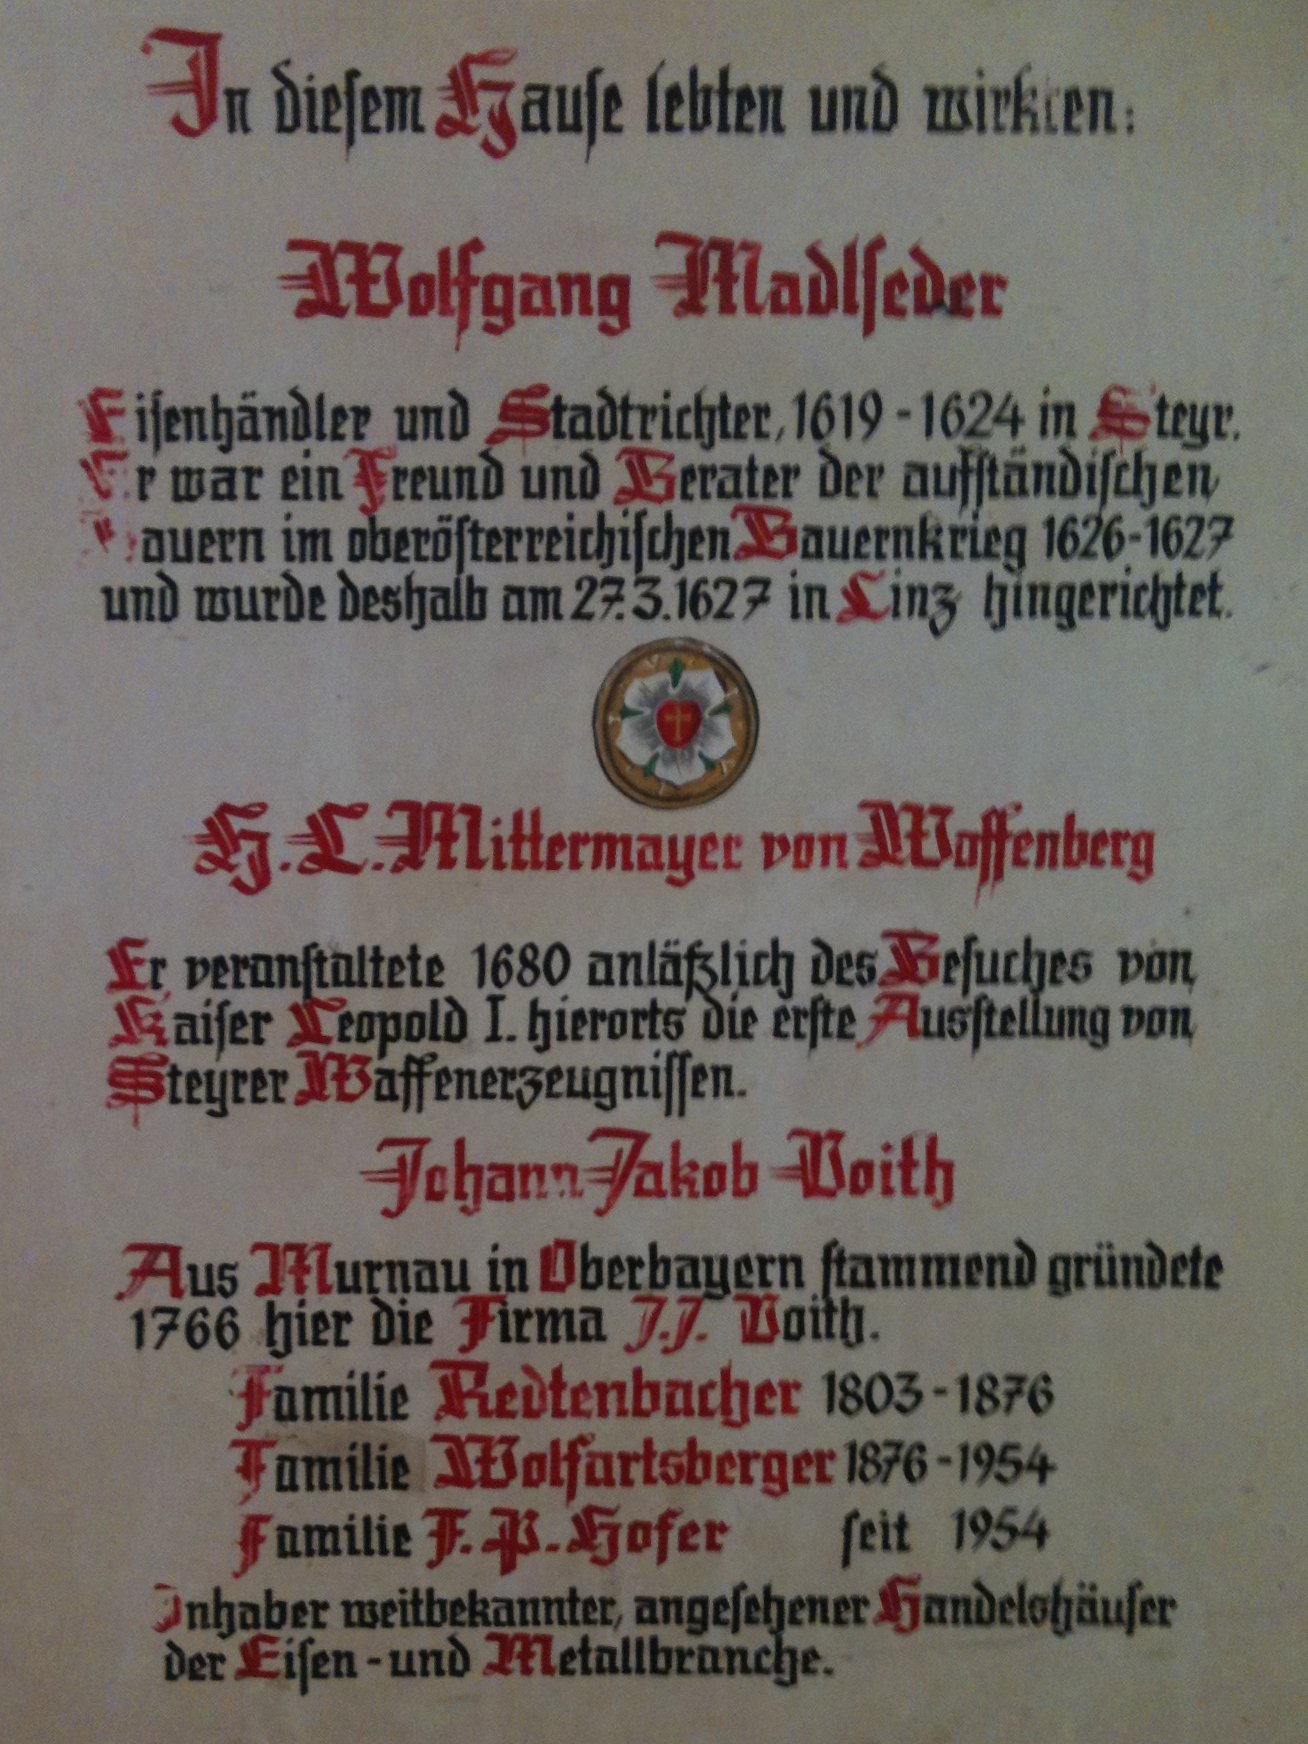 In diesem Hause lebten und wirkten:
Wolfgang Madlseder
Eisenhändler und Stadtrichter, 1619 - 1624 in Steyr.
Er war ein Freund und Berater der aufständischen
Bauern im oberösterreichischen Bauernkrieg 1626-1627
und wurde deshalb am 27.3.1627 in Linz hingerichtet.
H. L. Mittermayer von Waffenberg
Er veranstaltete 1680 anläßlich des Besuches von
Kaiser Leopold I. hierorts die erste Ausstellung von
Steyrer Waffenerzeugnissen.
Johann Jakob Voith
Aus Murnau in Oberbayern stammend gründete
1766 hier die Firma J.J. Voith.
Familie Redtenbacher 1803 - 1876
Familie Wolfartsberger 1876 - 1954
Familie F. P. Hofer seit 1954
Inhaber weitbekannter, angesehener Handelshäuser
der Eisen - und Metallbranche.